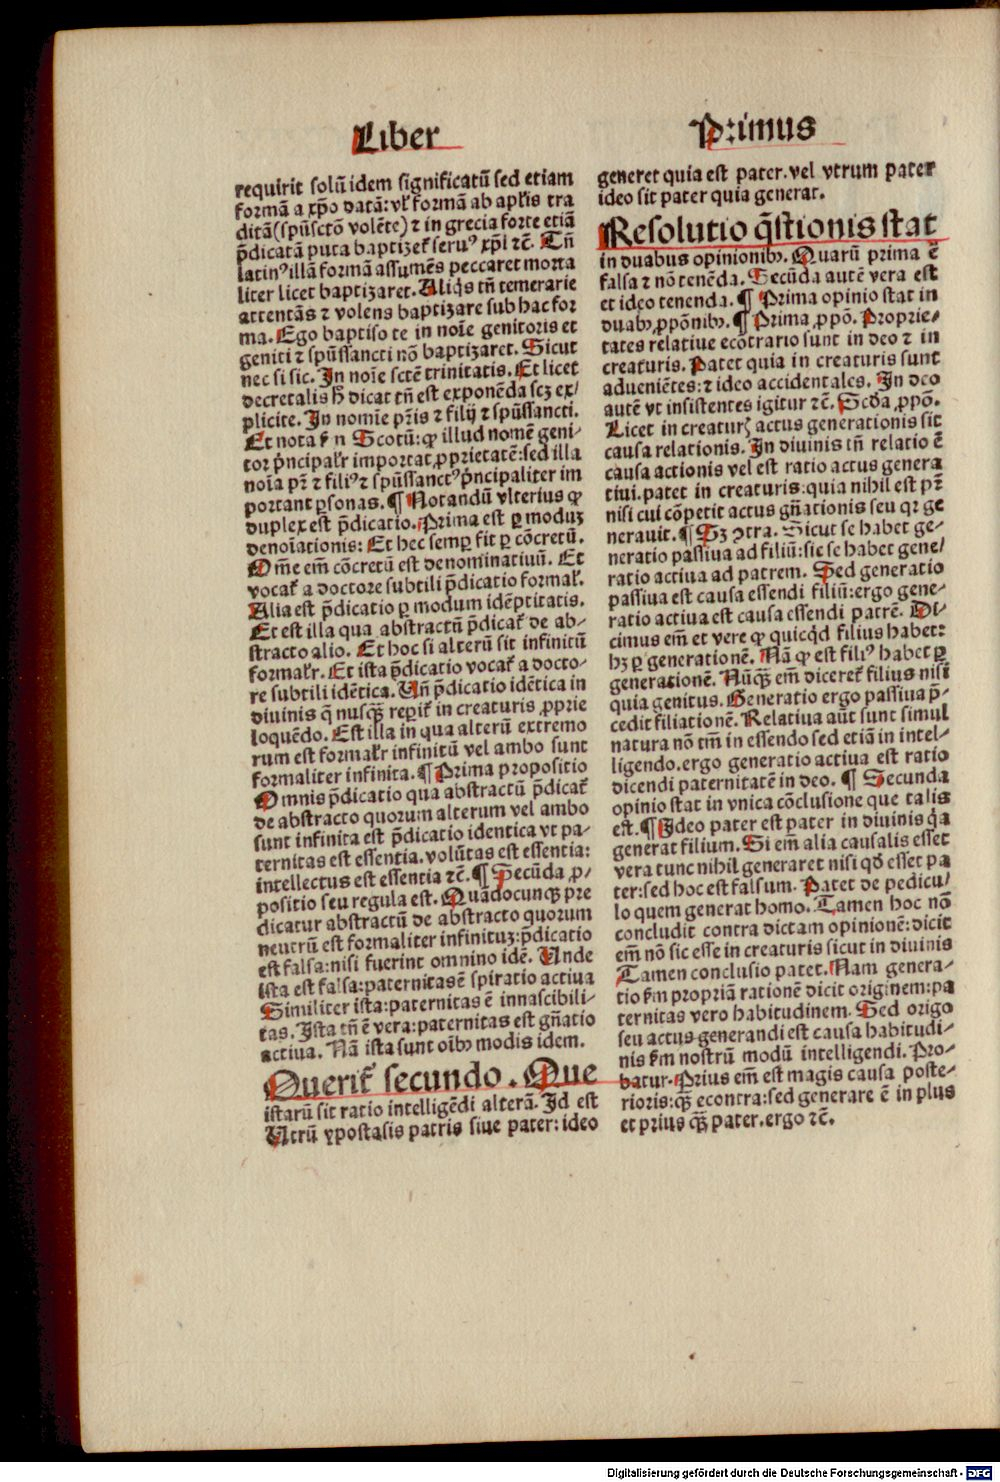 Liber
requirit solũ idem significatũ sed etiam
formã a xp̃o datã: vl̓ formã ab apl̓is tra
ditã (spũsctõ volẽte) ⁊ in grecia forte etiã
p̃dicatã puta baptizet̓ seruꝰ xp̃i ⁊c̃. Tñ
latinꝰ illã formã assumẽs peccaret morta
liter licet baptizaret. Aliq̃s tñ temerarie
attentãs ⁊ volens baptizare sub hac for
ma. Ego baptiso te in noĩe genitoris et
geniti ⁊ spũssancti nõ baptizaret. Sicut
nec si sic. In noĩe sctẽ trinitatis. Et licet
decretalis h̃ dicat tñ est exponẽda scꝫ ex⸗
plicite. In nomĩe pr̃is ⁊ filij ⁊ spũssancti.
Et nota ẜm Scotũ: ꝙ illud nomẽ geni⸗
tor p̃ncipal̓r importat ꝓprietatẽ: sed illa
noĩa pr̃ ⁊ filiꝰ ⁊ spũssanctꝰ p̃ncipaliter im
portant ꝑsonas. ¶ Notandũ vlterius ꝙ
duplex est p̃dicatio. Prima est ꝑ moduꝫ
denoĩationis: Et hec semꝑ fit ꝑ cõcretũ.
Om̃e em̃ cõcretũ est denominatiuũ. Et
vocat̓ a doctore subtili p̃dicatio formal̓.
Alia est p̃dicatio ꝑ modum idẽptitatis.
Et est illa qua abstractũ p̃dicat̓ de ab⸗
stracto alio. Et hoc si alterũ sit infinitũ
formal̓r. Et ista p̃dicatio vocat̓ a docto⸗
re subtili idẽtica. Vñ p̃dicatio idẽtica in
diuinis q̃ nusq̃ꝫ reꝑit̓ in creaturis ꝓprie
loquẽdo. Est illa in qua alterũ extremo
rum est formal̓r infinitũ vel ambo sunt
formaliter infinita. ¶ Prima propositio
Omnis p̃dicatio qua abstractũ p̃dicat̓
de abstracto quorum alterum vel ambo
sunt infinita est p̃dicatio identica vt pa⸗
ternitas est essentia. volũtas est essentia:
intellectus est essentia ⁊c̃. ¶ Secũda ꝓ⸗
positio seu regula est. Quãdocunqꝫ pre
dicatur abstractũ de abstracto quorum
neutrũ est formaliter infinituꝫ: p̃dicatio
est falsa: nisi fuerint omnino idẽ. Unde
ista est falsa: paternitas ẽ spiratio actiua
Similiter ista: paternitas ẽ innascibili⸗
tas. Ista tñ ẽ vera: paternitas est gñatio
actiua. Nã ista sunt oĩbꝰ modis idem.
Querit̓ secundo. Que
istarũ sit ratio intelligẽdi alterã. Id est
Vtrũ ypostasis patris siue pater: ideo
Primus
generet quia est pater. vel vtrum pater
ideo sit pater quia generat.
Resolutio q̃stionis stat
in duabus opinionibꝰ. Quarũ prima ẽ
falsa ⁊ nõ tenẽda. Secũda autẽ vera est
et ideo tenenda. ¶ Prima opinio stat in
duabꝰ ꝓpõnibꝰ. ¶ Prima ꝓpõ. Proprie⸗
tates relatiue ecõtrario sunt in deo ⁊ in
creaturis. Patet quia in creaturis sunt
adueniẽtes: ⁊ ideo accidentales. In deo
autẽ vt insistentes igitur ⁊c̃. Scḋa ꝓpõ.
Licet in creaturꝭ actus generationis sit
causa relationis. In diuinis tñ relatio ẽ
causa actionis vel est ratio actus genera
tiui. patet in creaturis: quia nihil est pr̃
nisi cui cõpetit actus gñationis seu qꝛ ge
nerauit. ¶ Sꝫ ↄtra. Sicut se habet ge⸗
neratio passiua ad filiũ: sic se habet gene⸗
ratio actiua ad patrem. Sed generatio
passiua est causa essendi filiũ: ergo gene⸗
ratio actiua est causa essendi patrẽ. Di⸗
cimus em̃ et vere ꝙ quicq̃d filius habet:
hꝫ ꝑ generationẽ. Nã ꝙ est filiꝰ habet ꝑ
generationẽ. Nũq̃ꝫ em̃ diceret̓ filius nisi
quia genitus. Generatio ergo passiua p̃⸗
cedit filiationẽ. Relatiua aũt sunt simul
natura nõ tm̃ in essendo sed etiã in intel⸗
ligendo. ergo generatio actiua est ratio
dicendi paternitatẽ in deo. ¶ Secunda
opinio stat in vnica cõclusione que talis
est. ¶ Ideo pater est pater in diuinis q̃a
generat filium. Si em̃ alia causalis esset
vera tunc nihil generaret nisi qḋ esset pa
ter: sed hoc est falsum. Patet de pedicu⸗
lo quem generat homo. Tamen hoc nõ
concludit contra dictam opinionẽ: dicit
em̃ nõ sic esse in creaturis sicut in diuinis
Tamen conclusio patet. Nam genera⸗
tio ẜm propriã rationẽ dicit originem: pa
ternitas vero habitudinem. Sed origo
seu actus generandi est causa habitudi⸗
nis ẜm nostrũ modũ intelligendi. Pro⸗
batur. Prius em̃ est magis causa poste⸗
rioris: q̃ꝫ econtra: sed generare ẽ in plus
et prius q̃ꝫ pater. ergo ⁊c̃.
Digitalisierung gefördert durch die Deutsche Forschungsgemeinschaft - DFG